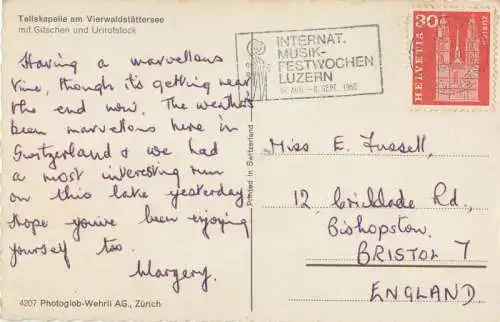 Tellskapelle am Vierwaldstättersee
mit Gitschen und Urirotstock
Having a marvellous
time, though it's getting near
the end now. The weather's
been marvellous here in
Switzerland & we had
a most interesting run
on this lake yesterday
Hope you've been enjoying
yourself too.
Margery.
4207 Photoglob-Wehrli AG., Zürich
Printed in Switzerland
INTERNAT.
MUSIK-
FESTWOCHEN
LUZERN
HELVETIA
30
ZÜRICH
Miss E. Fussell,
12, Cricklade Rd.,
Bishopston,
BRISTOL 7
ENGLAND